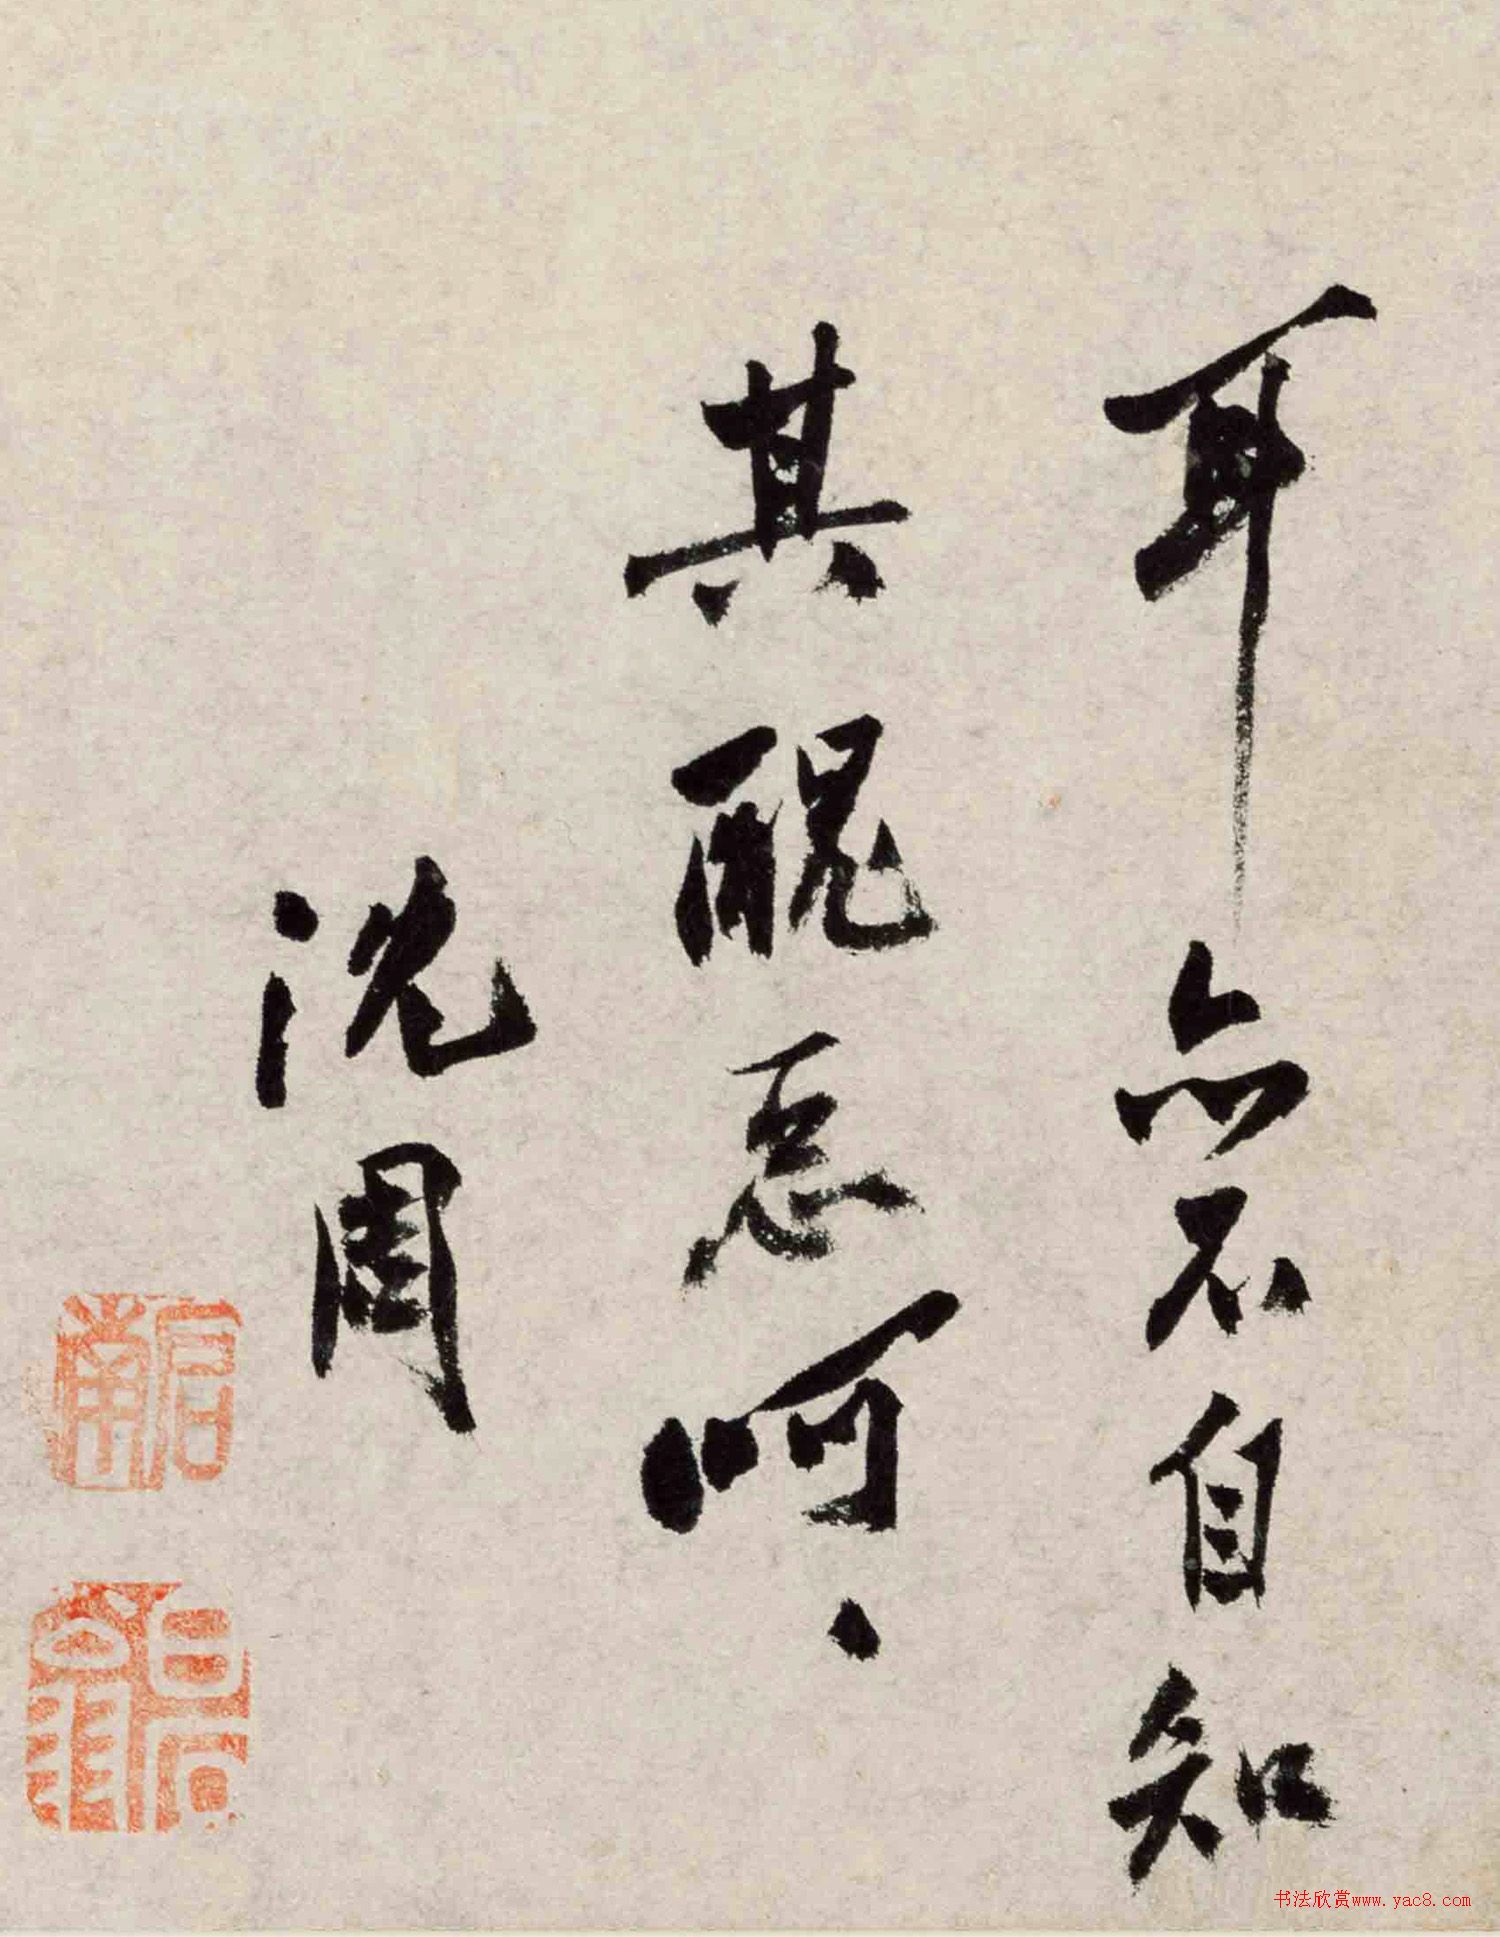 耳亦不自知
其醜惡呵、
沈周
啟南
白石翁
书法欣赏www.yac8.com